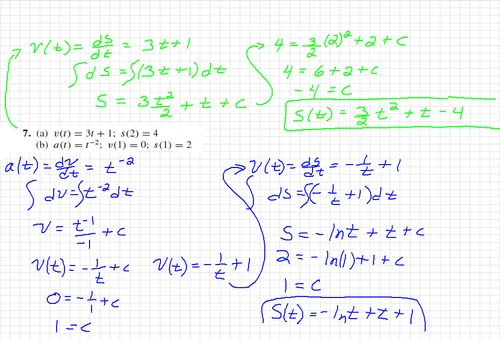 v(t) = ds/dt = 3t+1
∫ds = ∫(3t+1)dt
s = 3t²/2 + t + c
4 = 3/2(2)² + 2 + c
4 = 6+2+c
-4 = c
s(t) = 3/2 t² + t - 4
7. (a) v(t) = 3t + 1; s(2) = 4
(b) a(t) = t⁻²; v(1) = 0; s(1) = 2
a(t) = dv/dt = t⁻²
∫dv = ∫t⁻²dt
v = t⁻¹/-1 + c
v(t) = -1/t + c
0 = -1/1 + c
1 = c
v(t) = -1/t + 1
v(t) = ds/dt = -1/t + 1
ds = ∫(-1/t + 1)dt
s = -lnt + t + c
2 = -ln(1)+1+c
1 = c
s(t) = -lnt + t + 1